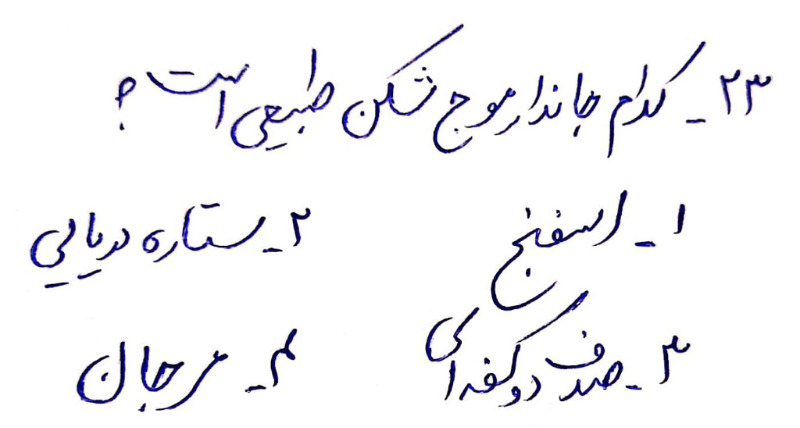 ۲۳- کدام جاندار موج شکن طبیعی است؟
۱- اسفنج ۲- ستاره دریایی
۳- صدف دو کفه ای ۴- مرجان